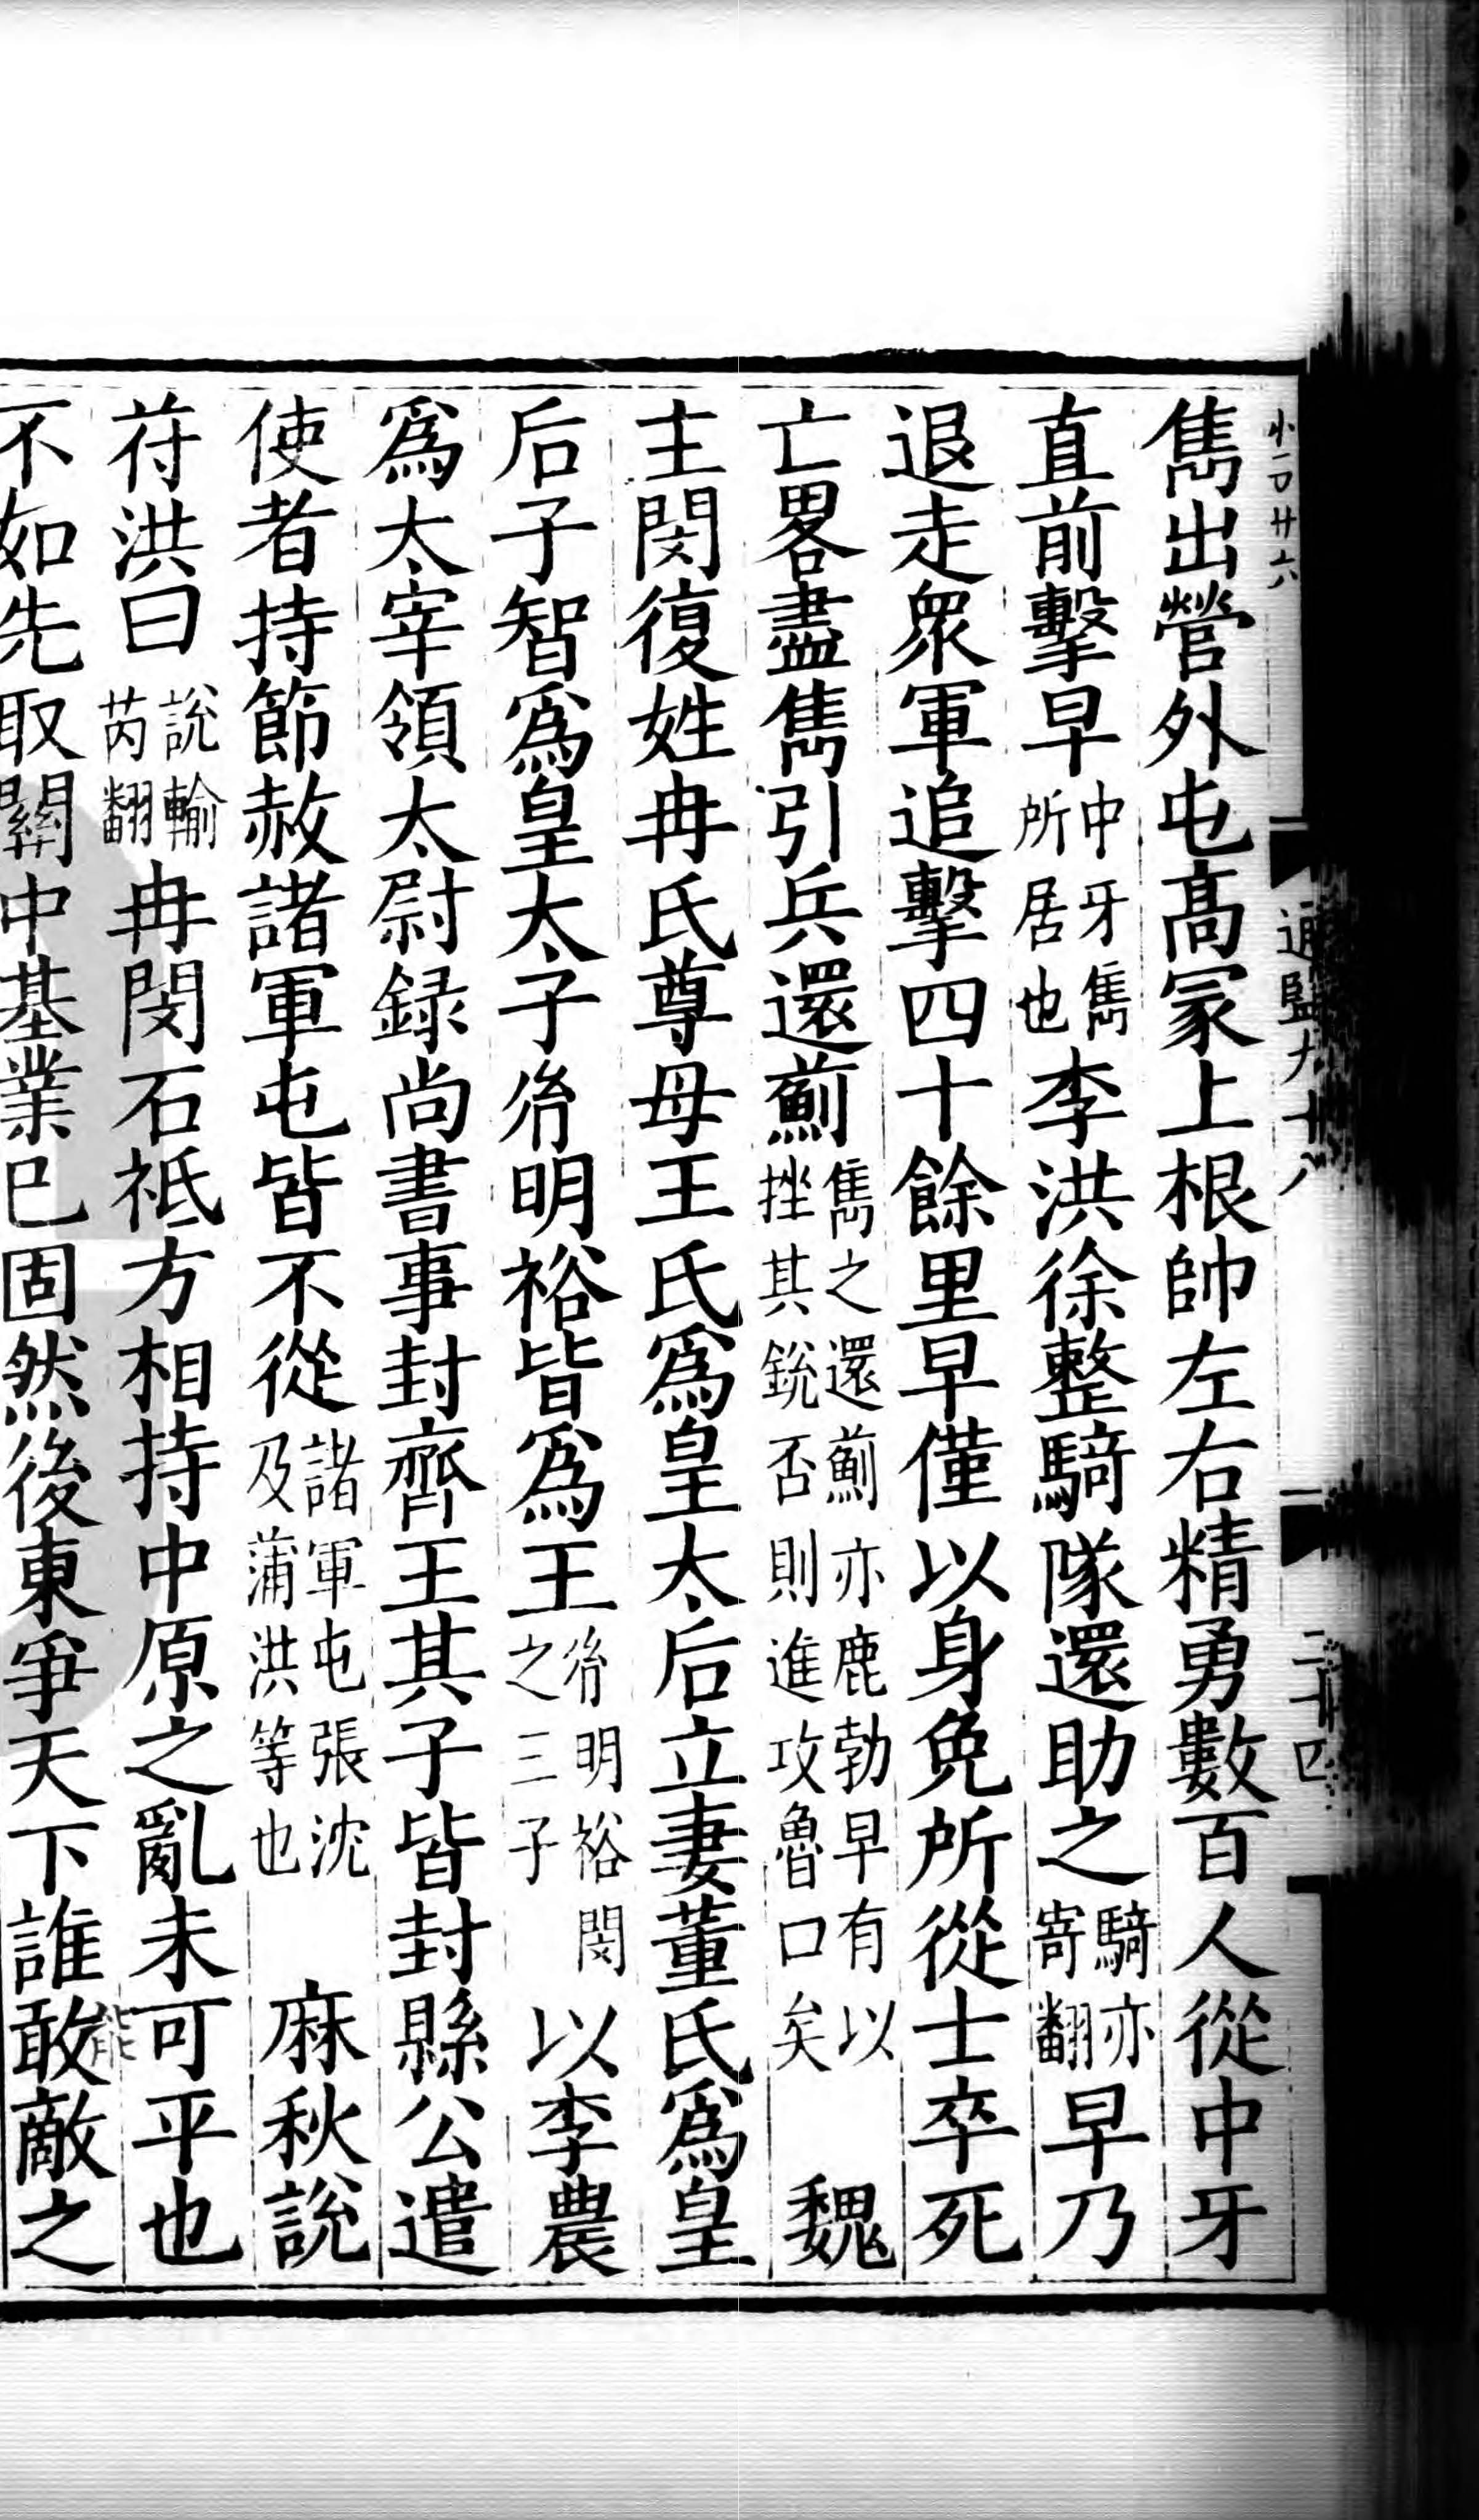 雋出營外屯高冢上根帥左右精勇數百人從中牙
直前擊早中牙雋所居也李洪徐整騎隊還助之騎亦寄翻早乃
退走衆軍追擊四十餘里早僅以身免所從士卒死
亡畧盡雋引兵還薊雋之還薊亦鹿勃早有以挫其銳否則進攻魯口矣魏
主閔復姓冉氏尊母王氏爲皇太后立妻董氏爲皇
后子智爲皇太子胤明裕皆爲王胤明裕閔之三子以李農
爲太宰領太尉録尚書事封齊王其子皆封縣公遣
使者持節赦諸軍屯皆不從諸軍屯張沈及蒲洪等也麻秋說
苻洪曰說輸芮翻冉閔石祗方相持中原之亂未可平也
不如先取關中基業已固然後東爭天下誰敢敵之
通鑑九十八
二十四